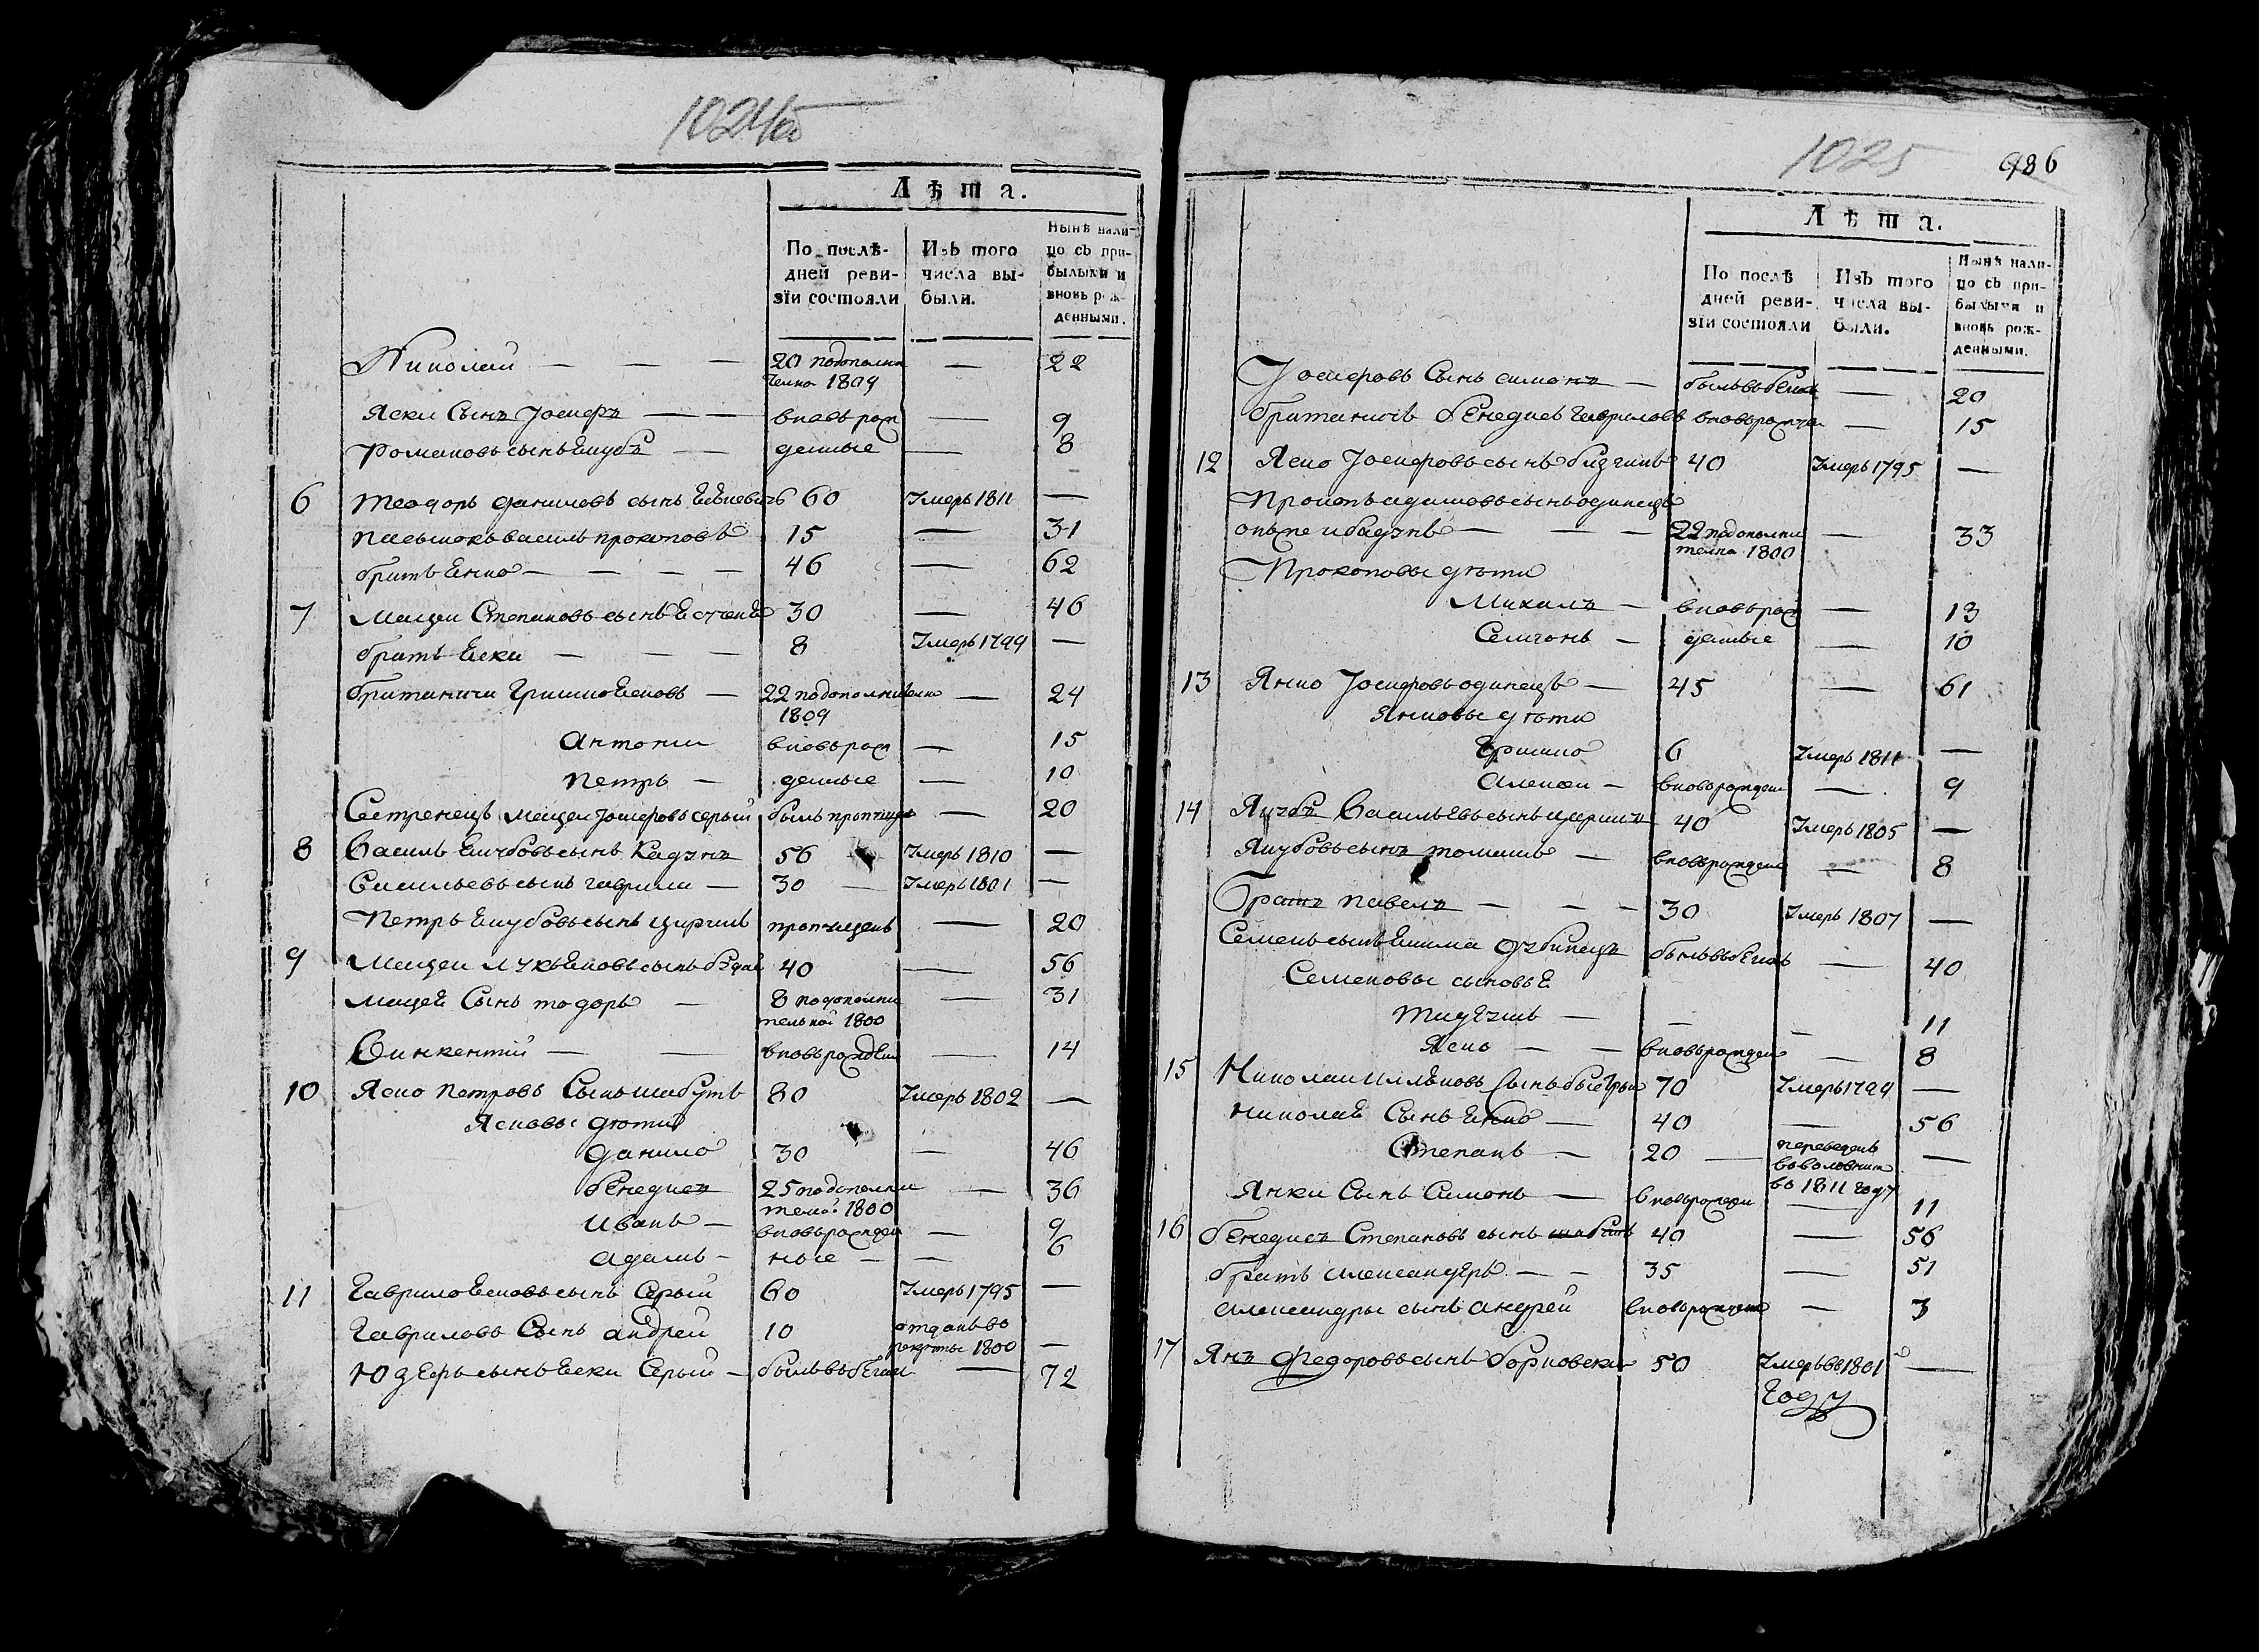 1024об
Лѣта.
По послѣ-
дней реви-
зїи состояли
Изъ того
числа вы-
были.
Нынѣ нали-
цо съ при-
былыми и
вновь рож-
денными.
Николай — — — 20 подополни — 22
телно 1809
Яски Сынъ Іосифъ — — вновь рож — 9
Романовъ сынъ Якубъ — денные — 8
6 Теодоръ Даниловъ сынъ 60 Умеръ 1811 —
пасынокъ василь прокоповъ 15 — 31
братъ Янко — — — — 46 — 62
7 Мацеи Степановъ сынъ 30 — 46
братъ Яски — — — 8 Умеръ 1799 —
братаничи Гришко Ясковъ — 22 подополнително — 24
1809
Антони вновь рож — 15
Петръ — денные — 10
Сестренецъ Мацеи Іосифовъ серый былъ пропущенъ — 20
8 Василь Якубовъ сынъ 56 Умеръ 1810 —
Васильевъ сынъ гаврила — 30 — Умеръ 1801 —
Петръ Якубовъ сынъ пропущенъ — 20
9 Мацеи Лукьяновъ сынъ 40 — 56
Мацея Сынъ тодоръ — 8 подополни — 31
тельной 1800
Винкентій — — вновь рожден — 14
10 Яско Петровъ Сынъ шабутъ 80 Умеръ 1802 —
Ясковы дѣти
Данило 30 — 46
бенедис 25 подополни — 36
телной 1800
Иванъ — вновь рожден — 9
Адамъ — ные — — 6
11 Гаврило Ясковъ сынъ Серый 60 Умеръ 1795 —
Гавриловъ Сынъ андрей 10 отданъ во
рекруты 1800 —
сынъ Яски Серый — былъ въ бегах — 72
1025 986
Лѣта.
По послѣ
дней реви-
зїи состояли
Изъ того
числа вы-
были.
Нынѣ нали-
цо съ при-
былыми и
вновь рож-
денными.
Іосифовъ Сынъ симонъ — былъ въ бегах — 20
братаничъ бенедис Гавриловъ вновь рожден — 15
12 Яско Іосифовъ сынъ 40 Умеръ 1795 —
Прокопъ адамовъ сынъ одинецъ
— — — 22 подополни — 33
телно 1800
Прокоповы дѣти
Михалъ — вновь рож — 13
Симонъ — денные — 10
13 Янко Іосифовъ одинецъ — 45 — 61
Янковы дѣти
Гришко 6 Умеръ 1811 —
Алексеи — вновь рожден — 9
14 Якубъ Васильевъ сынъ 40 Умеръ 1805 —
Якубовъ сынъ томашъ — вновь рожден — 8
Братъ павелъ — — — 30 Умеръ 1807 —
Семенъ сынъ былъ въ бегах — 40
Семеновы сыновья
Тадеушъ — — — 11
Яско — — вновь рожден — 8
15 Николаи сынъ быстрый 70 Умеръ 1799 —
Николая Сынъ Янко — 40 — 56
Степанъ — 20 — переведенъ —
во 1811 году
Янки Сынъ Симонъ — вновь рожден — 11
16 бенедисъ Степановъ сынъ 40 — 56
братъ александеръ — — 35 — 51
александры сынъ андрей вновь рожден — 3
17 Янъ Федоровъ сынъ борковски 50 Умеръ во 1801 —
году